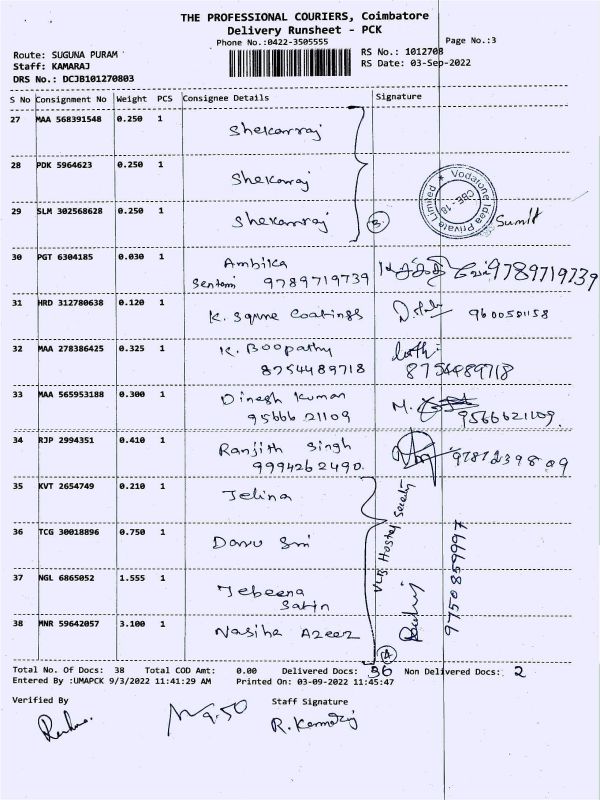 THE PROFESSIONAL COURIERS, Coimbatore
Delivery Runsheet - PCK
Phone No.:0422-3505555
Page No.:3
Route: SUGUNA PURAM
RS No.: 1012708
Staff: KAMARAJ
RS Date: 03-Sep-2022
DRS No.: DCJB101270803
S No Consignment No Weight PCS Consignee Details Signature
27 MAA 568391548 0.250 1 Shekarraj
28 PDK 5964623 0.250 1 Shekarraj
29 SLM 302568628 0.250 1 Shekarraj
3.
Vodafone Idea Private Limited ★
CBE-18
Sumit
30 PGT 6304185 0.030 1 Ambika 9789719739
9789719739
31 HRD 312780638 0.120 1 K. Squre Coatings 9600501158
32 MAA 278386425 0.325 1 K. Boopathy
8754489718 8754489718
33 MAA 565953188 0.300 1 Dinesh Kumar
95666 21109 9566621109.
34 RJP 2994351 0.410 1 Ranjith Singh
9994262490.
35 KVT 2654749 0.210 1 Jelina
36 TCG 30018896 0.750 1 Darru Sri
37 NGL 6865052 1.555 1 Jebeena
Sarin
38 MNR 59642057 3.100 1 Nasiha Azeez
VLB Hostel Security
9750859997
4
Total No. Of Docs: 38 Total COD Amt: 0.00 Delivered Docs: 36 Non Delivered Docs: 2
Entered By :UMAPCK 9/3/2022 11:41:29 AM Printed On: 03-09-2022 11:45:47
Verified By Staff Signature
9.50
R. Kamaraj